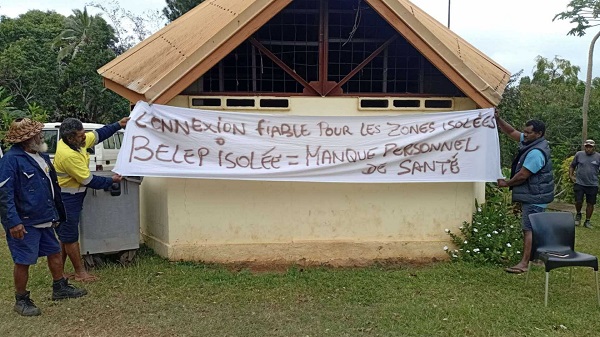 CONNEXION FIABLE POUR LES ZONES ISOLÉES
BELEP ISOLÉE = MANQUE PERSONNEL
DE SANTÉ